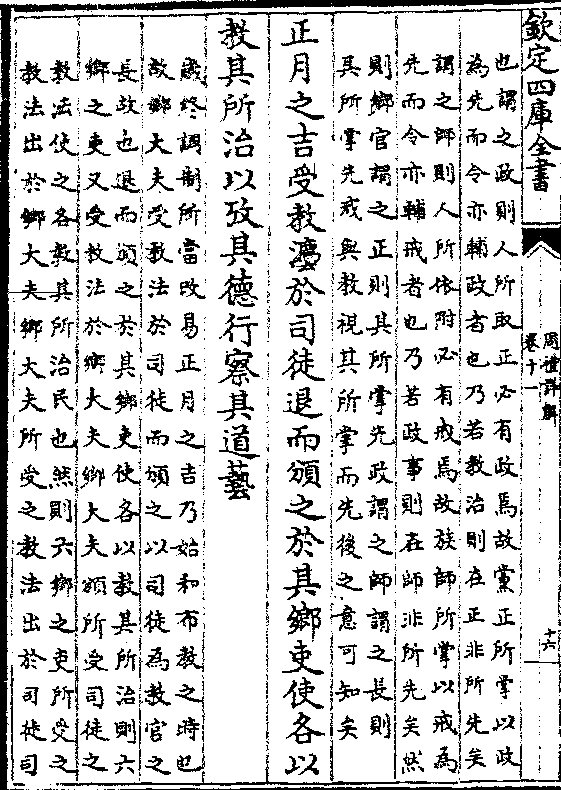 欽定四庫全書
周禮詳解
卷十一
十六
也謂之政則人所取正必有政焉故黨正所掌以政
為先而令亦輔政者也乃若教治則在正非所先矣
謂之師則人所依附必有戒焉故族師所掌以戒為
先而令亦輔戒者也乃若政事則在師非所先矣然
則鄉官謂之正則其所掌先政謂之師謂之長則
其所掌先戒與教視其所掌而先後之意可知矣
正月之吉受教灋於司徒退而頒之於其鄉吏使各以
教其所治以攷其德行察其道藝
歲終調制所當改易正月之吉乃始和布教之時也
故鄉大夫受教法於司徒而頒之以司徒為教官之
長故也退而頒之於其鄉吏使各以教其所治則六
鄉之吏又受教法於鄉大夫鄉大夫頒所受司徒之
教法使之各教其所治民也然則六鄉之吏所受之
教法出於鄉大夫鄉大夫所受之教法出於司徒司